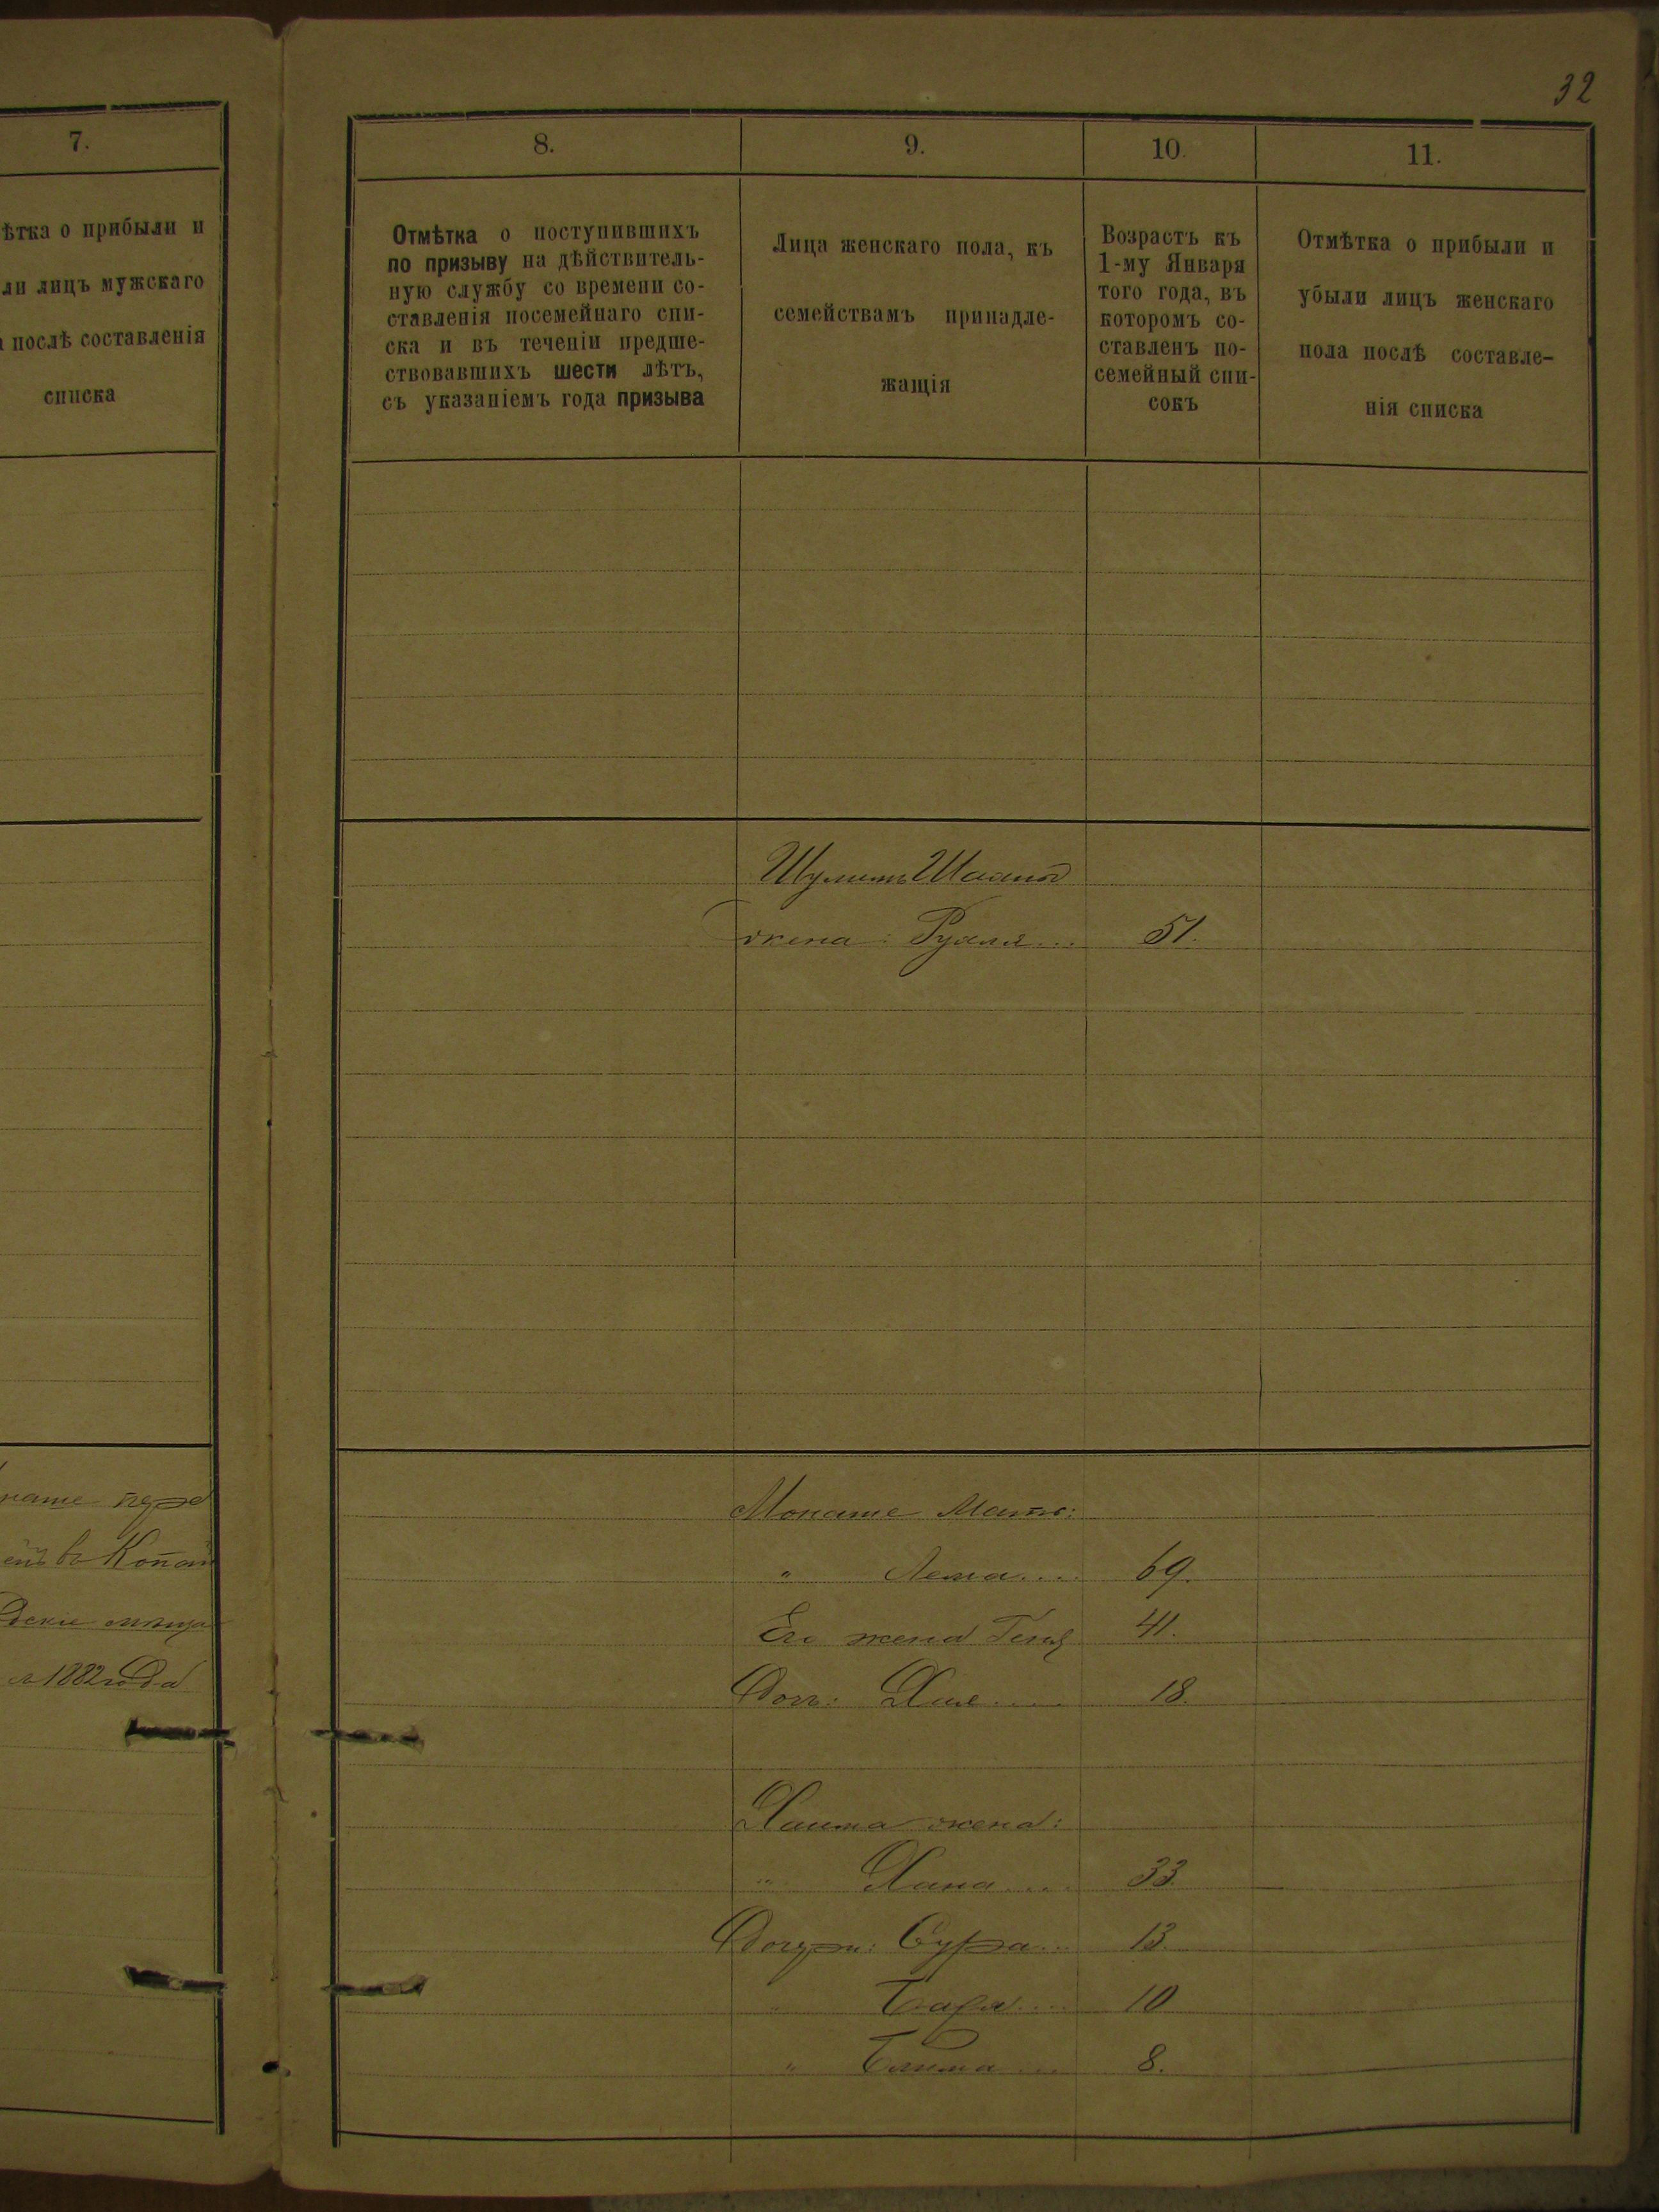 32
7.
ѣтка о прибыли и
ли лицъ мужскаго
послѣ составленія
списка
8.
9.
10.
11.
Отмѣтка о поступившихъ
по призыву на дѣйствитель-
ную службу со времени со-
ставленія посемейнаго спи-
ска и въ теченіи предше-
ствовавшихъ шести лѣтъ,
съ указаніемъ года призыва
Лица женскаго пола, къ
семействамъ принадле-
жащія
Возрастъ къ
1-му Января
того года, въ
которомъ со-
ставленъ по-
семейный спи-
сокъ
Отмѣтка о прибыли и
убыли лицъ женскаго
пола послѣ составле-
нія списка
жена: 51.
пере
въ
1882 года
Монаше Мать:
" 69.
Его жена 41.
Доч: 18.
Хаима жена:
" Хана.... 33
Дочери: Сура... 13.
" 10
" 8.